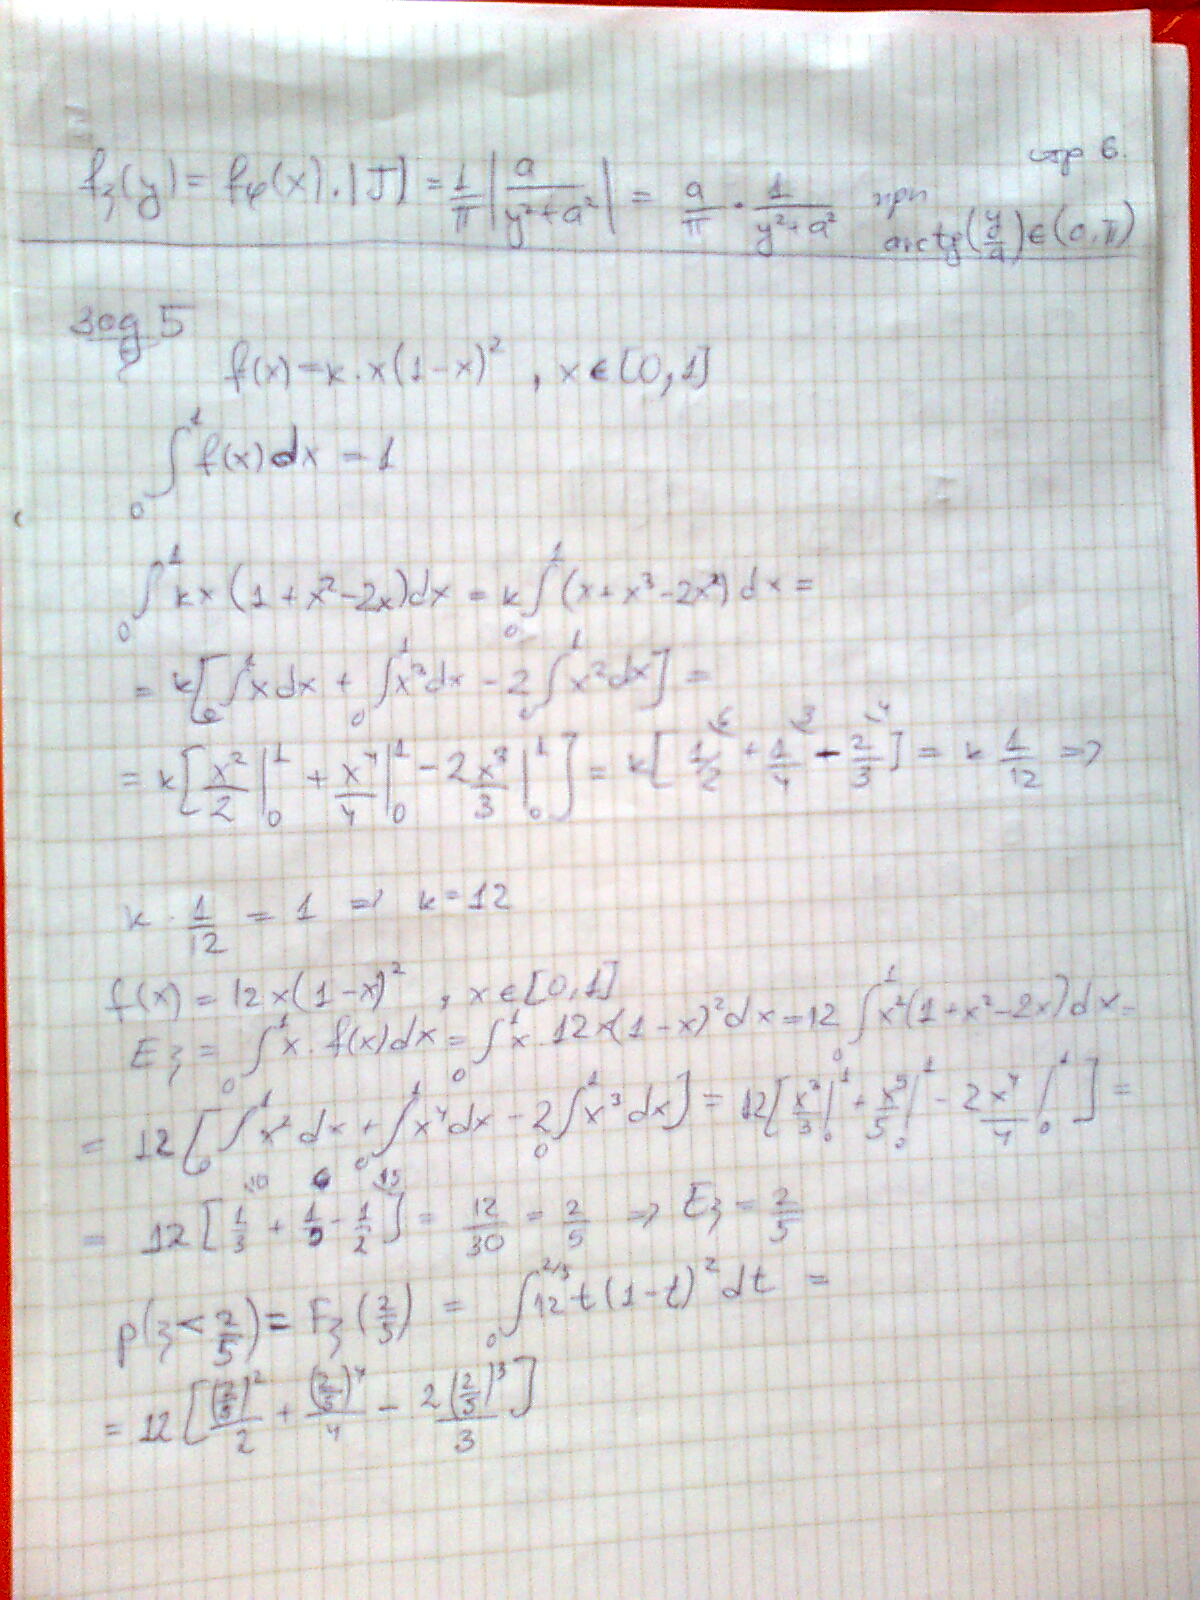 стр 6.
fξ(y) = fφ(x).|J| = 1/π |a/(y²+a²)| = a/π · 1/(y²+a²) при arctg(y/a) ∈ (0,π)
Зад 5
f(x) = k.x(1-x)² , x ∈ [0,1]
∫₀¹ f(x)dx = 1
∫₀¹ kx(1+x²-2x)dx = k∫₀¹(x+x³-2x²)dx =
= k[∫₀¹xdx + ∫₀¹x³dx - 2∫₀¹x²dx] =
= k[x²/2|₀¹ + x⁴/4|₀¹ - 2x³/3|₀¹] = k[1/2 + 1/4 - 2/3] = k 1/12 =>
k . 1/12 = 1 => k = 12
f(x) = 12x(1-x)² , x ∈ [0,1]
Eξ = ∫₀¹x.f(x)dx = ∫₀¹x.12x(1-x)²dx = 12∫₀¹x²(1+x²-2x)dx =
= 12[∫₀¹x²dx + ∫₀¹x⁴dx - 2∫₀¹x³dx] = 12[x³/3|₀¹ + x⁵/5|₀¹ - 2x⁴/4|₀¹] =
= 12[1/3 + 1/5 - 1/2] = 12/30 = 2/5 => Eξ = 2/5
p(ξ < 2/5) = Fξ(2/5) = ∫₀^(2/5) 12t(1-t)²dt =
= 12[(2/5)²/2 + (2/5)⁴/4 - 2(2/5)³/3]